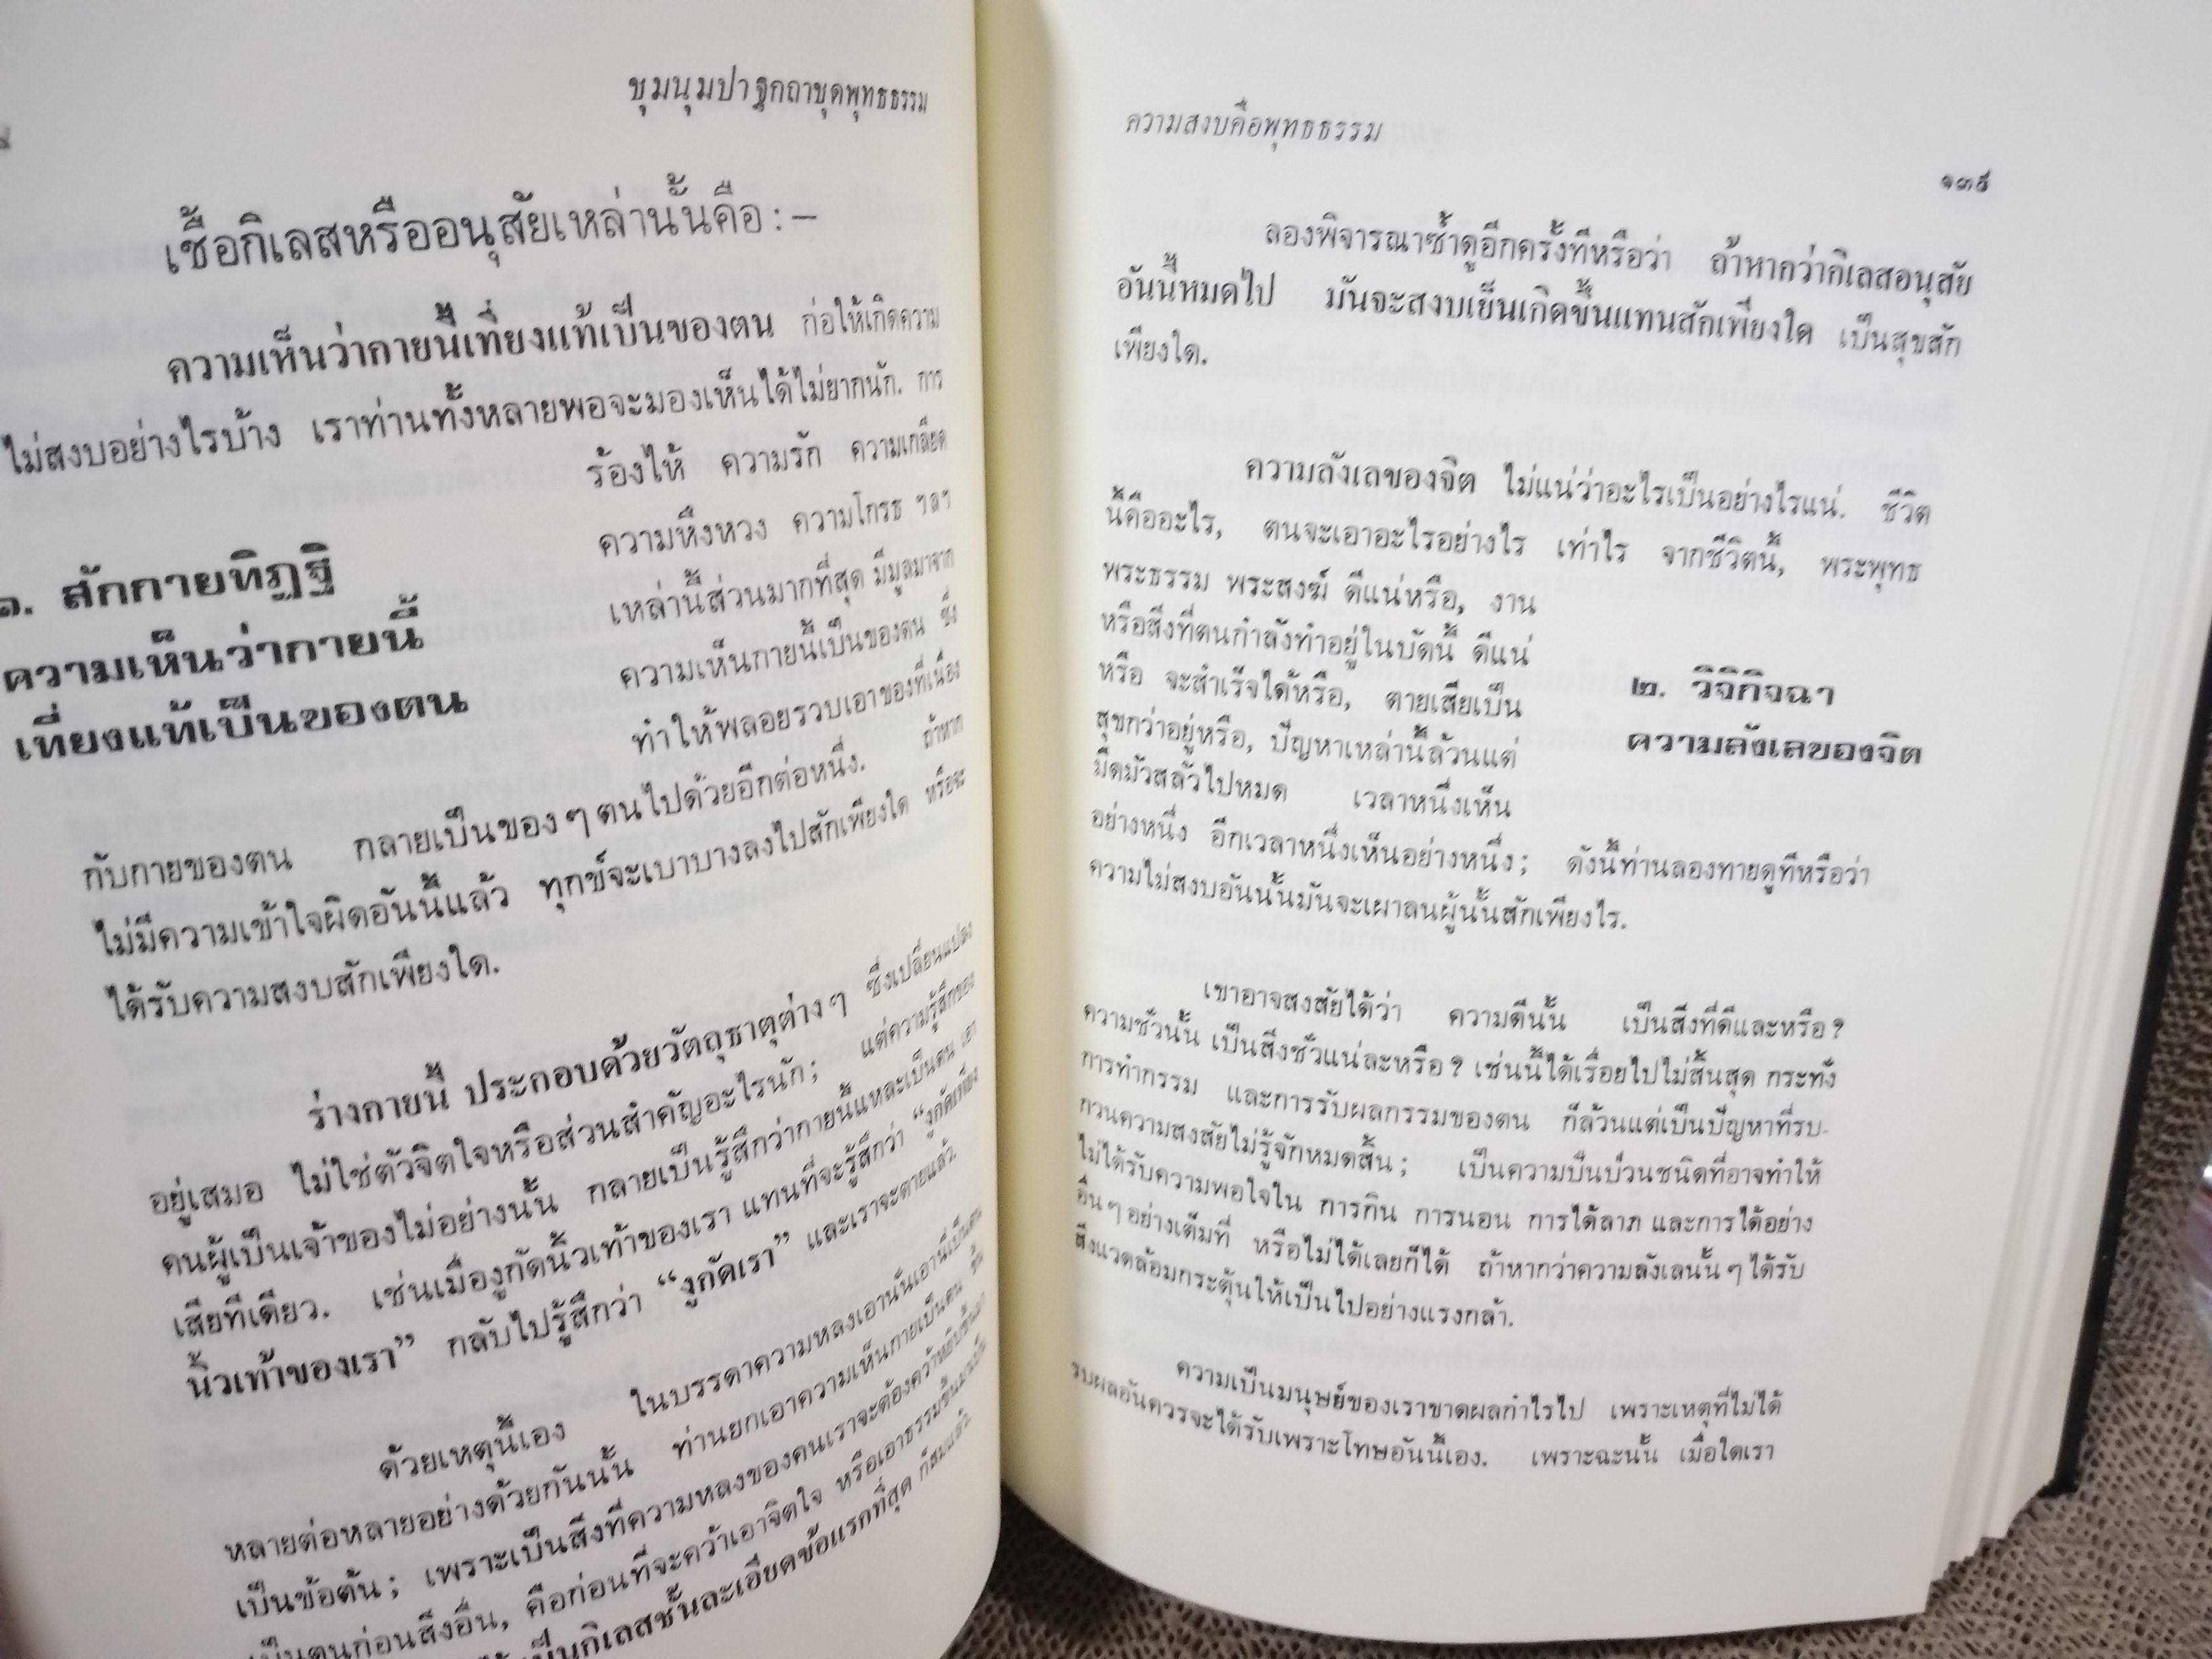 ชุมนุมปาฐกถาชุดพุทธธรรม
เชื้อกิเลสหรืออนุสัยเหล่านั้นคือ : –
ความเห็นว่ากายนี้เที่ยงแท้เป็นของตน ก่อให้เกิดความ
ไม่สงบอย่างไรบ้าง เราท่านทั้งหลายพอจะมองเห็นได้ไม่ยากนัก. การ
ร้องไห้ ความรัก ความเกลียด
ความหึงหวง ความโกรธ ฯลฯ
เหล่านี้ส่วนมากที่สุด มีมูลมาจาก
ความเห็นกายนี้เป็นของตน ซึ่ง
ทำให้พลอยรวบเอาของที่เนื่อง
๑. สักกายทิฏฐิ
ความเห็นว่ากายนี้
เที่ยงแท้เป็นของตน
กับกายของตน กลายเป็นของ ๆ ตนไปด้วยอีกต่อหนึ่ง. ถ้าหาก
ไม่มีความเข้าใจผิดอันนี้แล้ว ทุกข์จะเบาบางลงไปสักเพียงใด หรือจะ
ได้รับความสงบสักเพียงใด.
ร่างกายนี้ ประกอบด้วยวัตถุธาตุต่าง ๆ ซึ่งเปลี่ยนแปลง
อยู่เสมอ ไม่ใช่ตัวจิตใจหรือส่วนสำคัญอะไรนัก ; แต่ความรู้สึกของ
คนผู้เป็นเจ้าของไม่อย่างนั้น กลายเป็นรู้สึกว่ากายนี้แหละเป็นตน เอา
เสียทีเดียว. เช่นเมื่องูกัดนิ้วเท้าของเรา แทนที่จะรู้สึกว่า “งูกัดเพียง
นิ้วเท้าของเรา” กลับไปรู้สึกว่า “งูกัดเรา” และเราจะตายแล้ว.
ด้วยเหตุนี้เอง ในบรรดาความหลงเอานั่นเอานี่เป็นตน
หลายต่อหลายอย่างด้วยกันนั้น ท่านยกเอาความเห็นกายเป็นตน ขึ้น
เป็นข้อต้น ; เพราะเป็นสิ่งที่ความหลงของคนเราจะต้องคว้าหยิบขึ้นมา
เป็นตนก่อนสิ่งอื่น, คือก่อนที่จะคว้าเอาจิตใจ หรือเอาธรรมขึ้นมาเป็น
เป็นกิเลสชั้นละเอียดข้อแรกที่สุด ก็สมแล้ว.
ความสงบคือพุทธธรรม
๑๓๕
ลองพิจารณาซ้ำดูอีกครั้งทีหรือว่า ถ้าหากว่ากิเลสอนุสัย
อันนี้หมดไป มันจะสงบเย็นเกิดขึ้นแทนสักเพียงใด เป็นสุขสัก
เพียงใด.
ความลังเลของจิต ไม่แน่ว่าอะไรเป็นอย่างไรแน่. ชีวิต
นี้คืออะไร, ตนจะเอาอะไรอย่างไร เท่าไร จากชีวิตนี้, พระพุทธ
พระธรรม พระสงฆ์ ดีแน่หรือ, งาน
หรือสิ่งที่ตนกำลังทำอยู่ในบัดนี้ ดีแน่
หรือ จะสำเร็จได้หรือ, ตายเสียเป็น
สุขกว่าอยู่หรือ, ปัญหาเหล่านี้ล้วนแต่
มืดมัวสลัวไปหมด เวลาหนึ่งเห็น
๒. วิจิกิจฉา
ความลังเลของจิต
อย่างหนึ่ง อีกเวลาหนึ่งเห็นอย่างหนึ่ง ; ดังนี้ท่านลองทายดูทีหรือว่า
ความไม่สงบอันนั้นมันจะเผาลนผู้นั้นสักเพียงไร.
เขาอาจสงสัยได้ว่า ความดีนั้น เป็นสิ่งที่ดีและหรือ ?
ความชั่วนั้น เป็นสิ่งชั่วแน่ละหรือ ? เช่นนี้ได้เรื่อยไปไม่สิ้นสุด กระทั่ง
การทำกรรม และการรับผลกรรมของตน ก็ล้วนแต่เป็นปัญหาที่รบ-
กวนความสงสัยไม่รู้จักหมดสิ้น ; เป็นความปั่นป่วนชนิดที่อาจทำให้
ไม่ได้รับความพอใจใน การกิน การนอน การได้ลาภ และการได้อย่าง
อื่น ๆ อย่างเต็มที่ หรือไม่ได้เลยก็ได้ ถ้าหากว่าความลังเลนั้น ๆ ได้รับ
สิ่งแวดล้อมกระตุ้นให้เป็นไปอย่างแรงกล้า.
ความเป็นมนุษย์ของเราขาดผลกำไรไป เพราะเหตุที่ไม่ได้
รับผลอันควรจะได้รับเพราะโทษอันนี้เอง. เพราะฉะนั้น เมื่อใดเรา